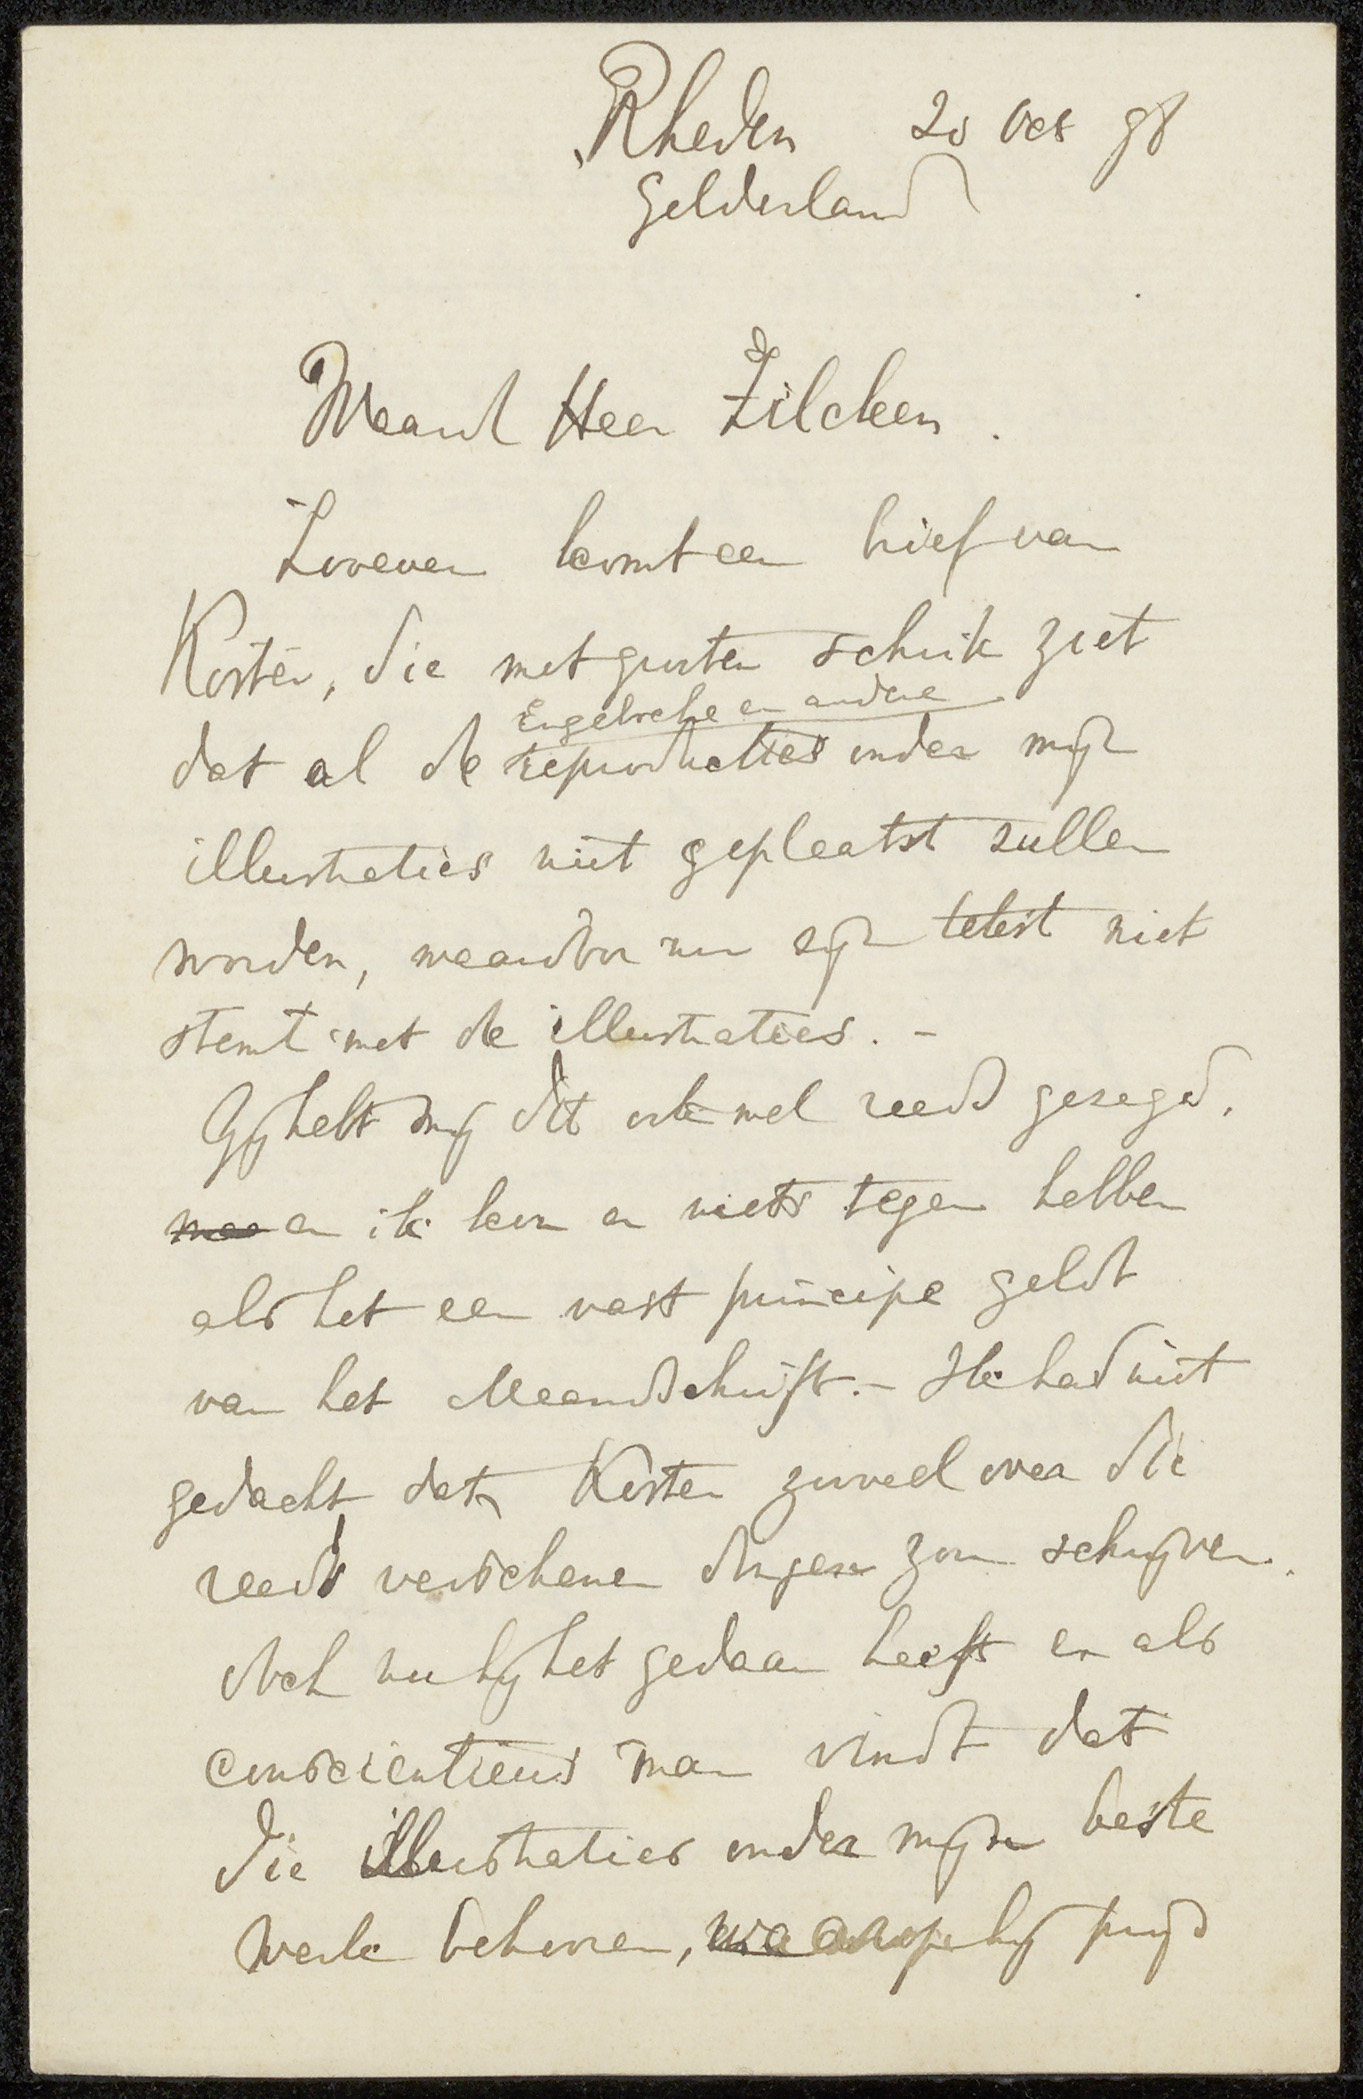 Rheden 20 Oct 98
Gelderland
Waarde Heer Zilcken.
Zooeven komt een brief van
Koster, die met grooten schrik ziet
Engelsche en andere
dat al de reproducties onder mijn
illustraties niet geplaatst zullen
worden, waardoor nu zijn tekst niet
stemt met de illustraties. -
Gij hebt mij dit ook wel reeds gezegd,
maa en ik kon er niets tegen hebben
als het een vast principe geldt
van het Maandschrift. - Ik had niet
gedacht dat Koster zooveel over die
reeds verschenen dingen zou schrijven.
doch nu hij het gedaan heeft en als
conscientieus man vindt dat
die illustraties onder mijn beste
werk behooren, waarop hij prijs